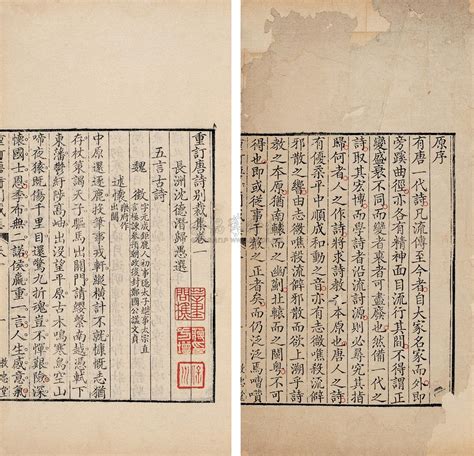 原序
有唐一代詩凡流傳至今者自大家名家而外即
旁蹊曲徑亦各有精神面目流行其間不得謂正
變盛衰不同而變者衰者可盡廢也然備一代之
詩取其宏博而學詩者沿流討源則必尋究其指
歸何者人之作詩將求詩教之本原也唐人之詩
有優柔平中順成和動之音亦有志微噍殺流僻
邪散之響由志微噍殺流僻邪散而欲上溯乎詩
教之本原猶南轅而之幽薊北轅而之閩粵不可
得也即或從事於聲之正者矣而仍泛泛焉嘈囋
重訂唐詩別裁集卷一
長洲沈德潛歸愚選
五言古詩
魏徵 字元成鉅鹿人初事隱太子繼事太宗直
言極諫參預朝政後封鄭國公諡文貞
述懷 一作出關
中原還逐鹿投筆事戎軒縱橫計不就慷慨志猶
存杖策謁天子驅馬出關門請纓繫南越憑軾下
東藩鬱紆陟高岫出沒望平原古木鳴寒鳥空山
啼夜猿既傷千里目還驚九折魂豈不憚艱險深
懷國士恩季布無二諾侯嬴重一言人生感意氣
教忠堂